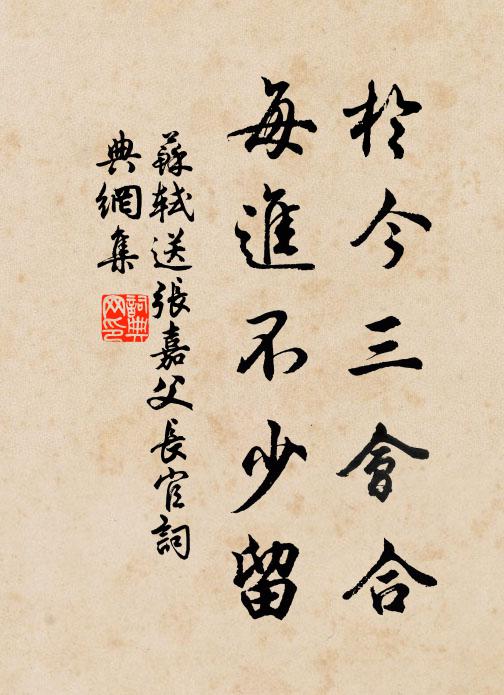 於今三會合
每進不少留
蘇軾送張嘉父長官詞
典網集
詞典网印